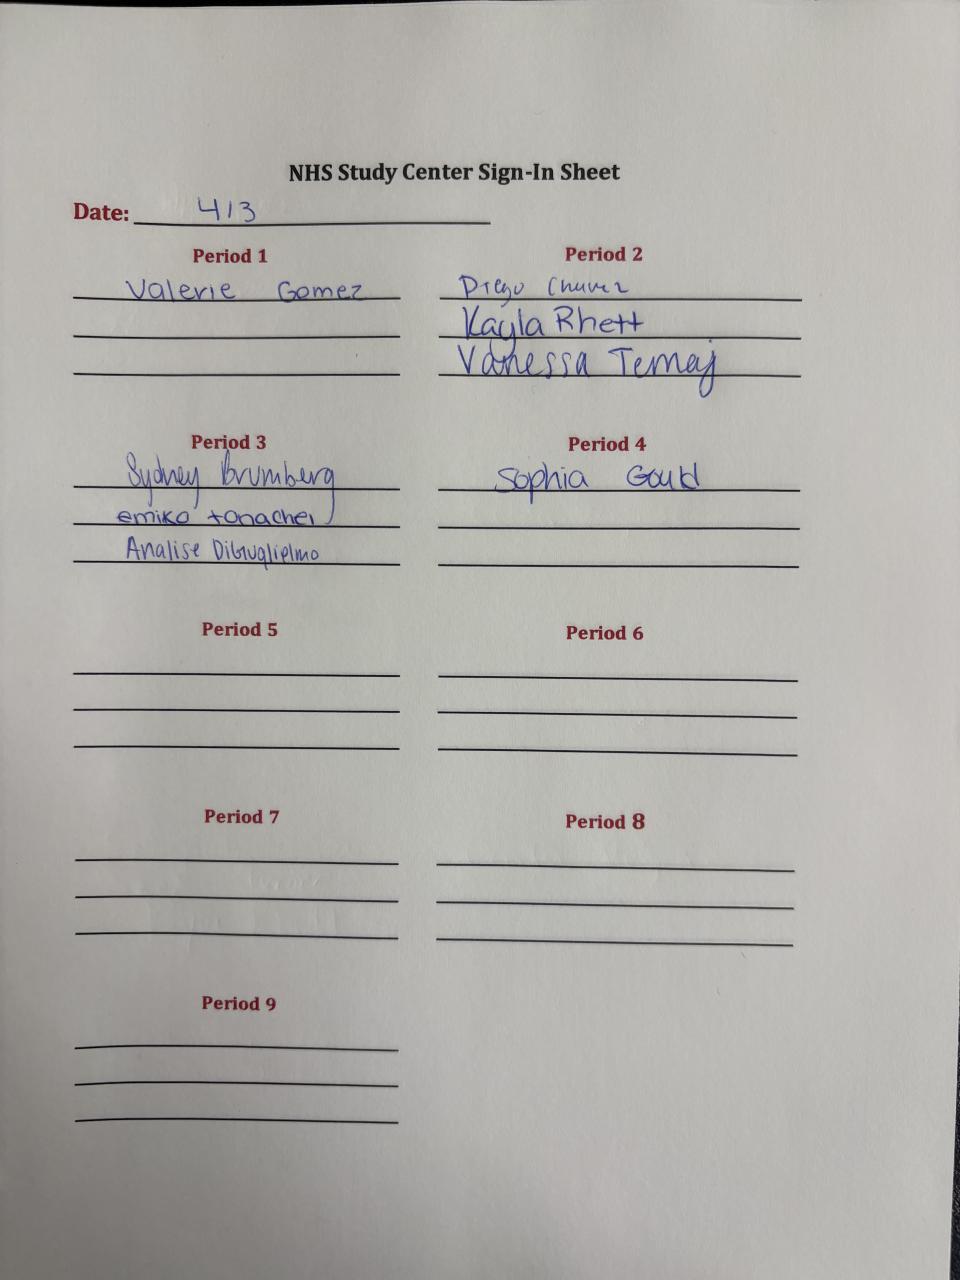 NHS Study Center Sign-In Sheet
Date: 413
Period 1
Valerie Gomez
Period 2
Diego Chavez
Kayla Rhett
Vanessa Temaj
Period 3
Sydney Brumberg
emiko tonachei
Analise DiGuglielmo
Period 4
Sophia Gould
Period 5
Period 6
Period 7
Period 8
Period 9